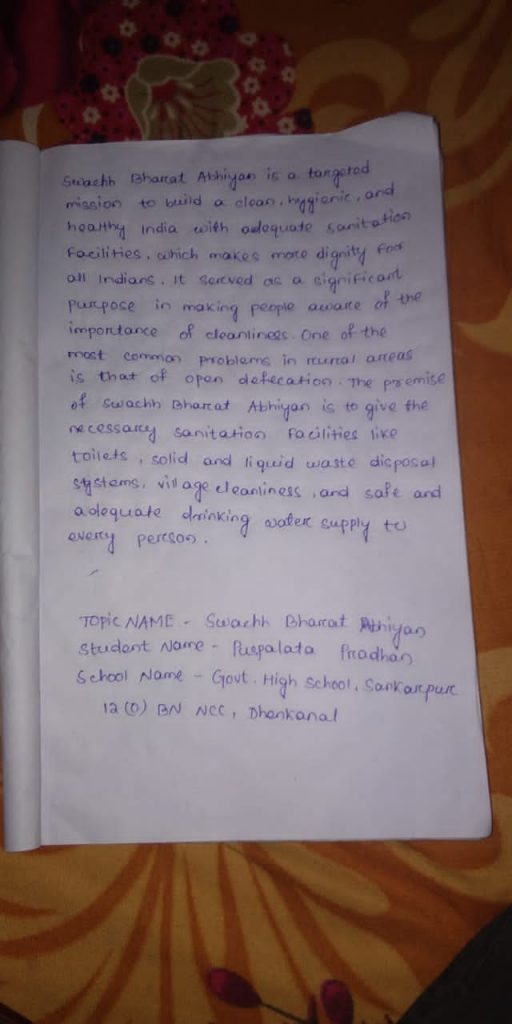 Swachh Bharat Abhiyan is a targeted
mission to build a clean, hygienic, and
healthy India with adequate sanitation
facilities, which makes more dignity for
all Indians. It served as a significant
purpose in making people aware of the
importance of cleanliness. One of the
most common problems in rural areas
is that of open defecation. The premise
of Swachh Bharat Abhiyan is to give the
necessary sanitation facilities like
toilets, solid and liquid waste disposal
systems, village cleanliness, and safe and
adequate drinking water supply to
every person.
TOPIC NAME - Swachh Bharat Abhiyan
Student Name - Puspalata Pradhan
School Name - Govt. High School, Sankarpur
12 (O) BN NCC, Dhenkanal